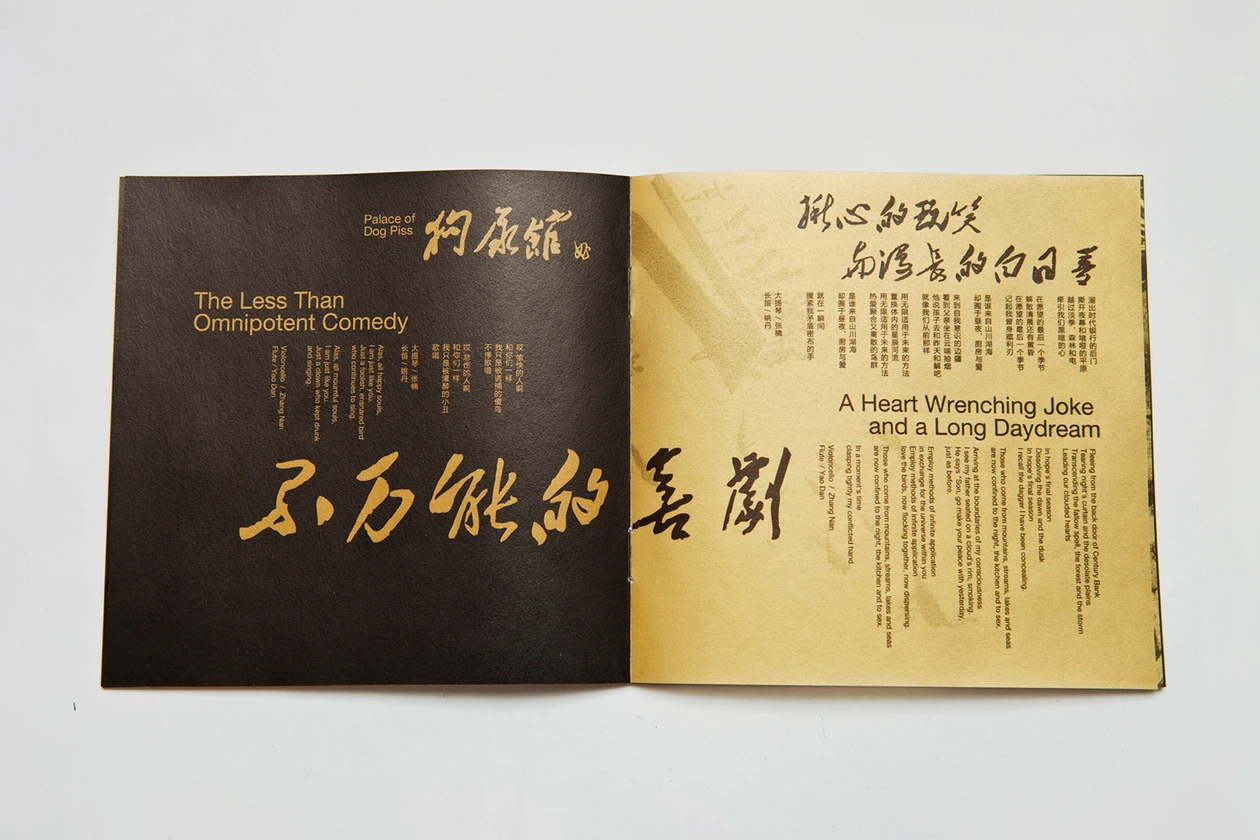 Palace of
Dog Piss
狗尿館
The Less Than
Omnipotent Comedy
哎 愉快的人啊
和你们一样
我只是被诱博的傻鸟
不停歌唱
哎 悲伤的人啊
和你们一样
我只是被灌醉的小丑
歌唱
大提琴 / 张楠
长笛 / 姚丹
Alas, all happy souls,
I am just like you.
Just a foolish, ensnared bird
who continues to sing.
Alas, all mournful souls,
I am just like you.
Just a clown who kept drunk
and singing.
Violoncello / Zhang Nan
Flute / Yao Dan
不万能的喜劇
揪心的玩笑
与漫長的白日夢
溜出时代银行的后门
撕开夜幕和喑哑的平原
越过淡季、森林和电
牵引我们黑暗的心
在愿望的最后一个季节
解散清晨还有黄昏
在愿望的最后一个季节
记起我曾身藏利刃
是谁来自山川湖海
却囿于昼夜、厨房与爱
来到自我意识的边疆
看到父亲坐在云端抽烟
他说孩子去和昨天和解吧
就像我们从前那样
用无限适用于未来的方法
置换体内的星辰河流
用无限适用于未来的方法
热爱聚合又离散的鸟群
是谁来自山川湖海
却囿于昼夜、厨房与爱
就在一瞬间
握紧我矛盾密布的手
大提琴 / 张楠
长笛 / 姚丹
A Heart Wrenching Joke
and a Long Daydream
Fleeing from the back door of Century Bank
Tearing night's curtain and the desolate plains
Transcending the fallow spell, the forest and the storm
Leading our clouded hearts
In hope's final season
Dissolving the dawn and the dusk
In hope's final season
I recall the dagger I have been concealing.
Those who come from mountains, streams, lakes and seas
are now confined to the night, the kitchen and to sex.
Arriving at the boundaries of my consciousness
I see my father seated on a cloud's rim, smoking.
He says "Son, go make your peace with yesterday,
just as before.
Employ methods of infinite application
in exchange for the universe within you
Employ methods of infinite application
love the birds, now flocking together, now dispersing.
Those who come from mountains, streams, lakes and seas
are now confined to the night, the kitchen and to sex.
In a moment's time
clasping tightly my conflicted hand..
Violoncello / Zhang Nan
Flute / Yao Dan